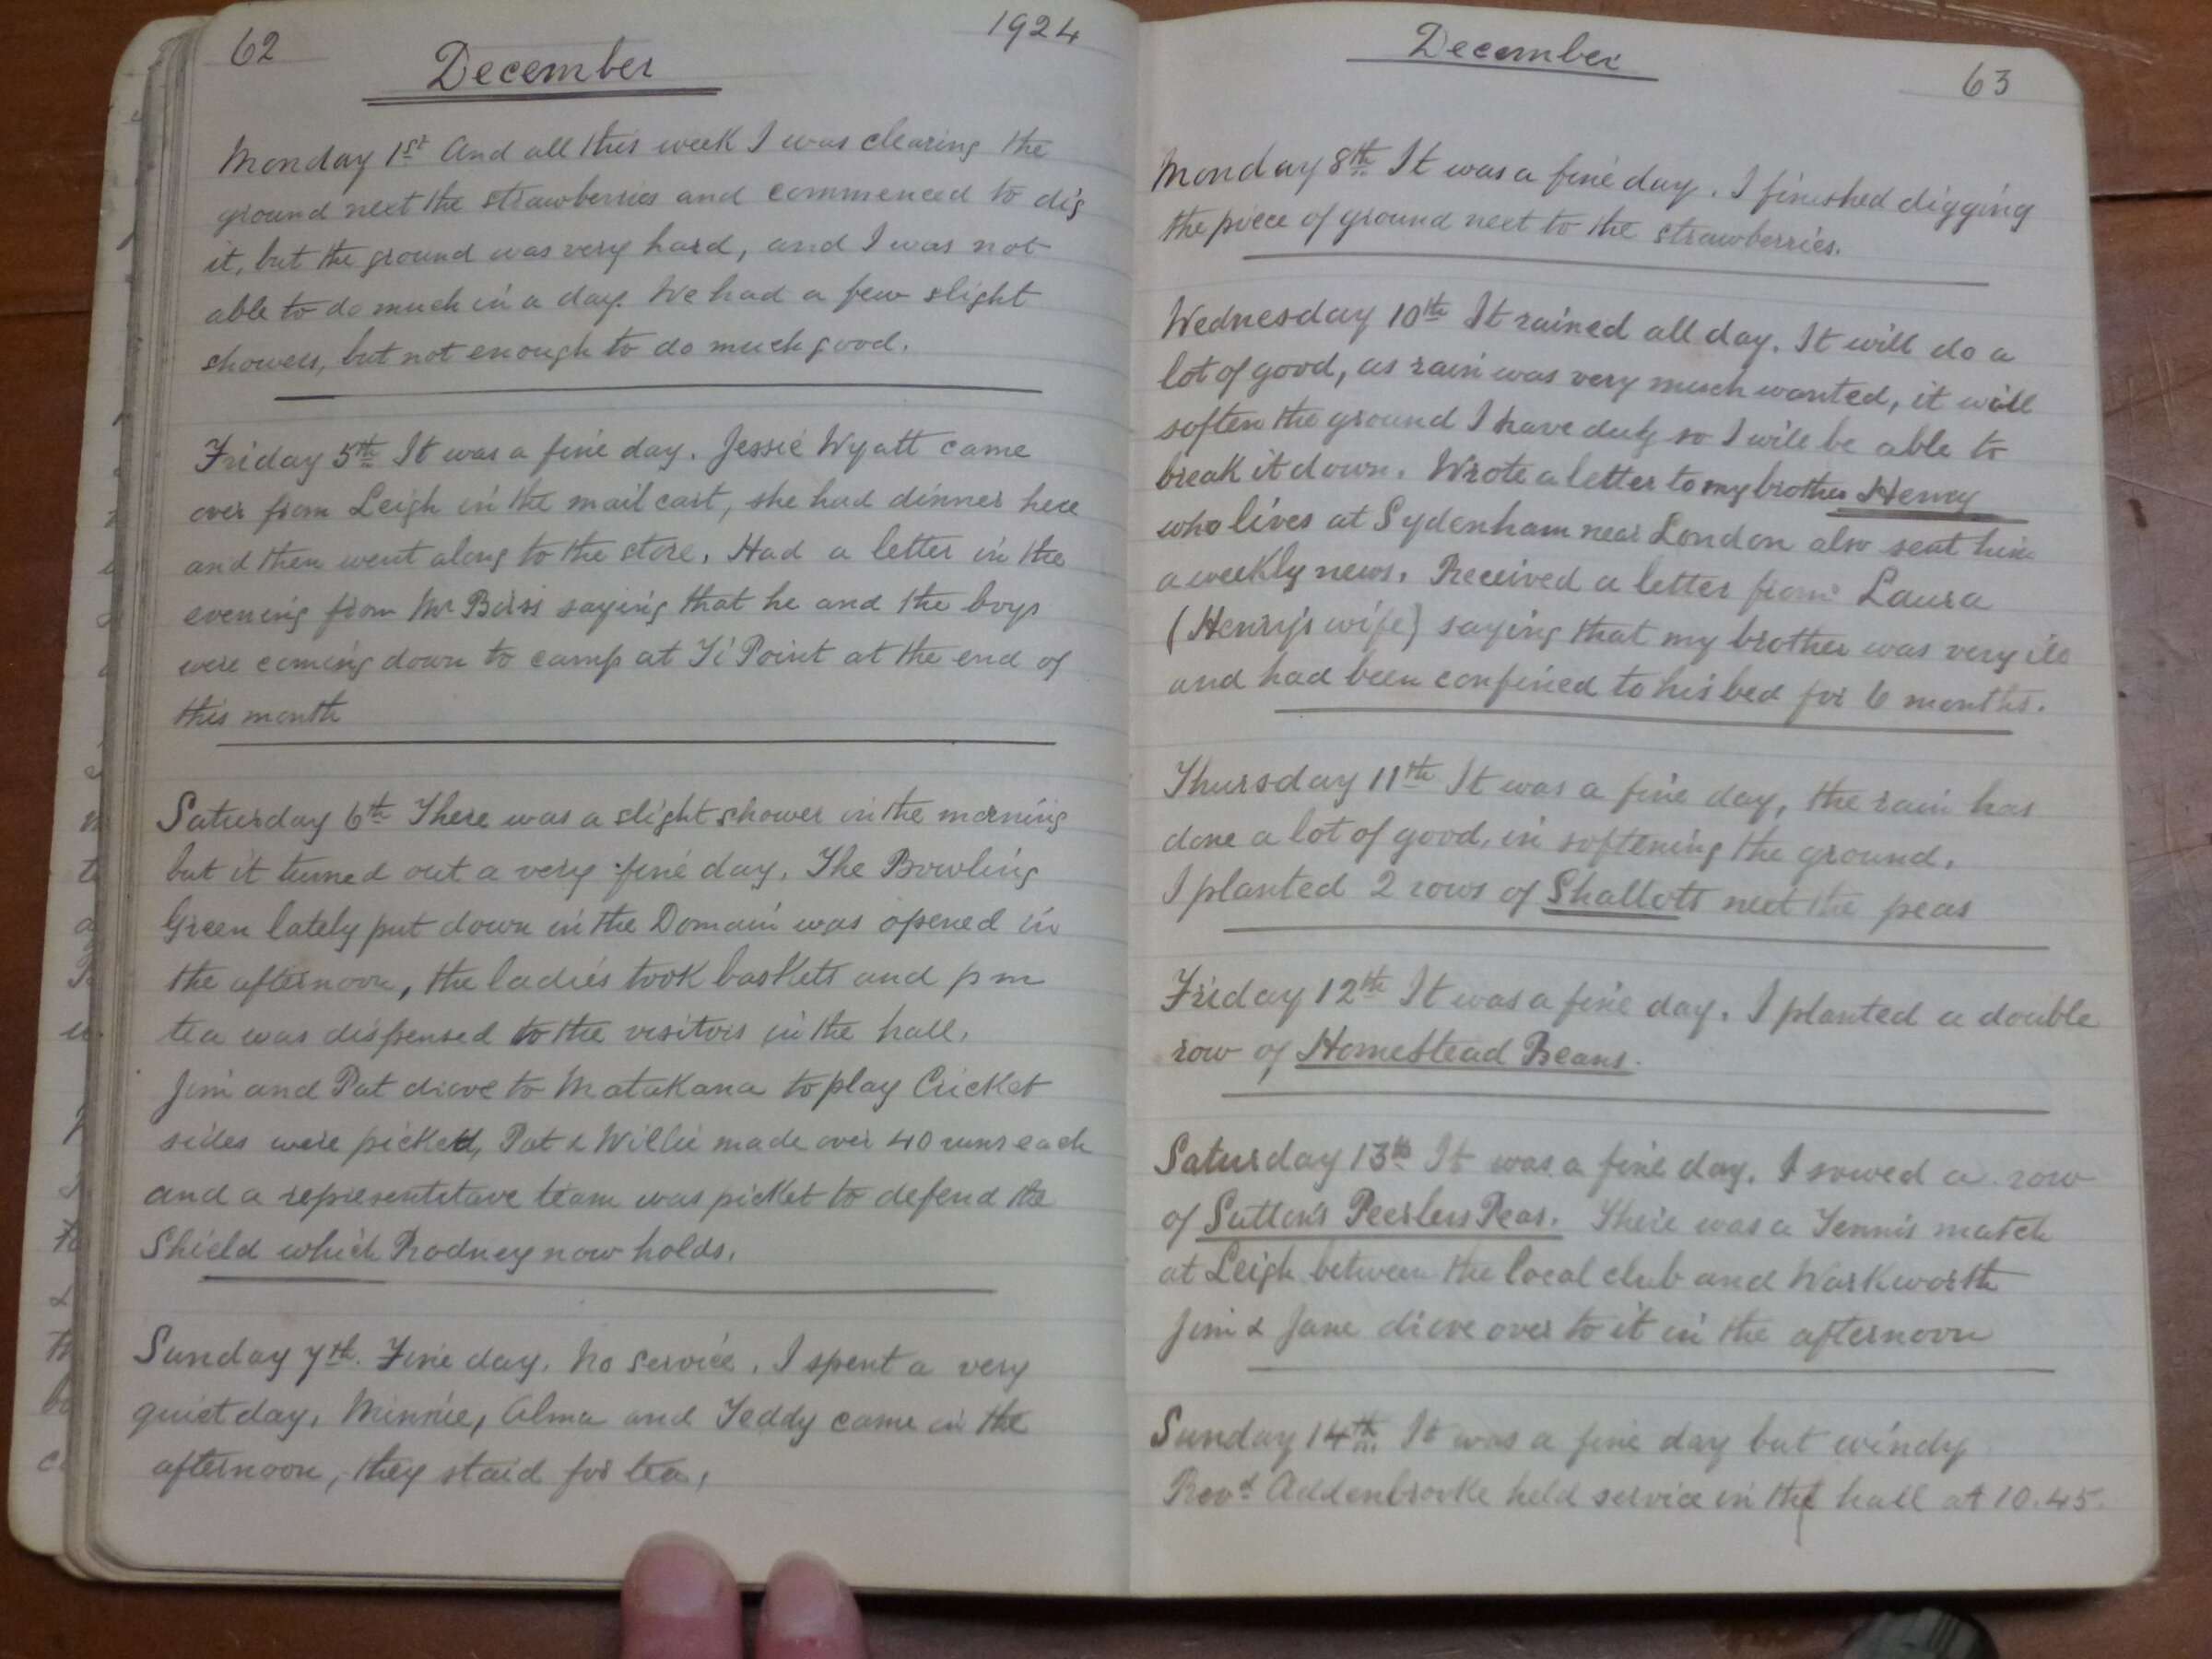 62
1924
December
Monday 1st And all this week I was clearing the
ground next the strawberries and commenced to dig
it, but the ground was very hard, and I was not
able to do much in a day. We had a few slight
showers, but not enough to do much good.
Friday 5th It was a fine day. Jessie Wyatt came
over from Leigh in the mail cart, she had dinner here
and then went along to the store. Had a letter in the
evening from Mr saying that he and the boys
were coming down to camp at Ti Point at the end of
this month
Saturday 6th There was a slight shower in the morning
but it turned out a very fine day. The Bowling
Green lately put down in the Domain was opened in
the afternoon, the ladies took baskets and p m
tea was dispensed to the visitors in the hall.
Jim and Pat drove to Matakana to play Cricket
sides were picked, Pat & Willie made over 40 runs each
and a representitave team was picket to defend the
Shield which Rodney now holds.
Sunday 7th. Fine day. No service. I spent a very
quiet day. Minnie, Alma and Teddy came in the
afternoon, they staid for tea.
December
63
Monday 8th It was a fine day. I finished digging
the piece of ground next to the strawberries.
Wednesday 10th It rained all day. It will do a
lot of good, as rain was very much wanted, it will
soften the ground I have dug so I will be able to
break it down. Wrote a letter to my brother Henry
who lives at Sydenham near London also sent him
a weekly news. Received a letter from Laura
(Henry's wife) saying that my brother was very ill
and had been confined to his bed for 6 months.
Thursday 11th It was a fine day, the rain has
done a lot of good, in softening the ground.
I planted 2 rows of Shallots next the peas
Friday 12th It was a fine day. I planted a double
row of Homestead Beans.
Saturday 13th It was a fine day. I sowed a row
of Sutton's Peerless Peas. There was a Tennis match
at Leigh between the local club and Warkworth
Jim & Jane drove over to it in the afternoon
Sunday 14th It was a fine day but windy
Revd Addenbrooke held service in the hall at 10.45.